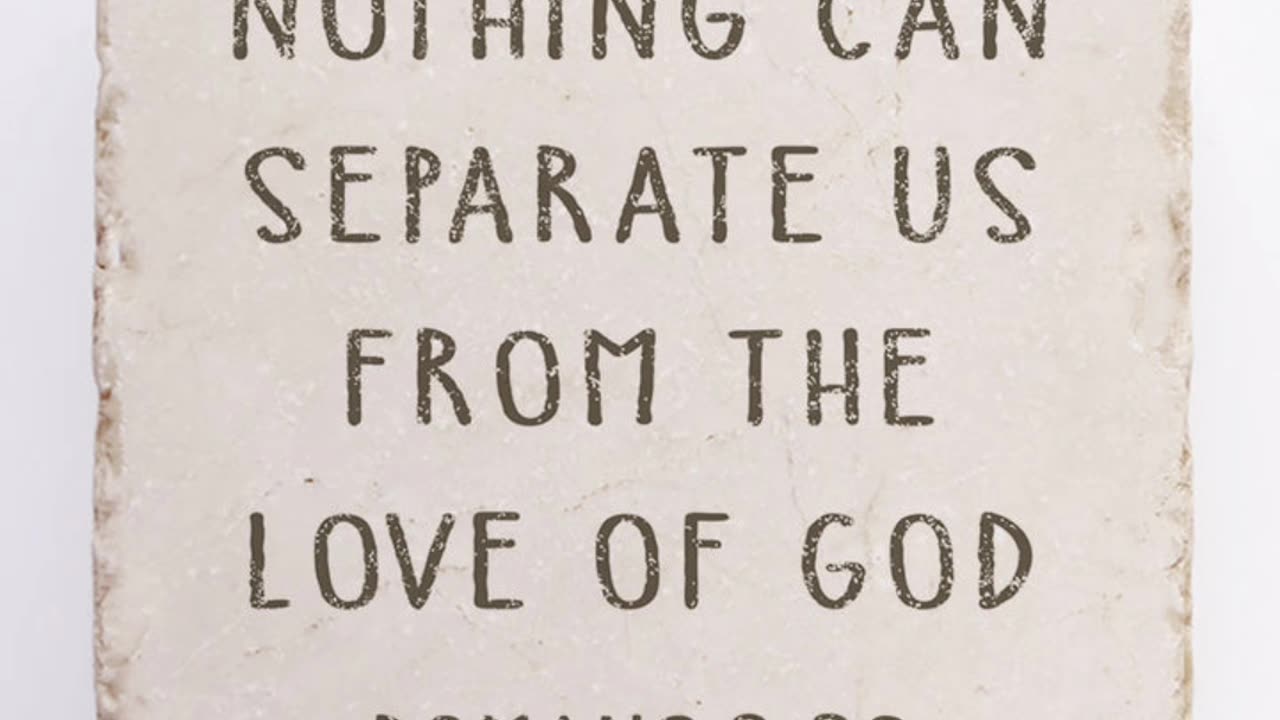 NOTHING CAN
SEPARATE US
FROM THE
LOVE OF GOD